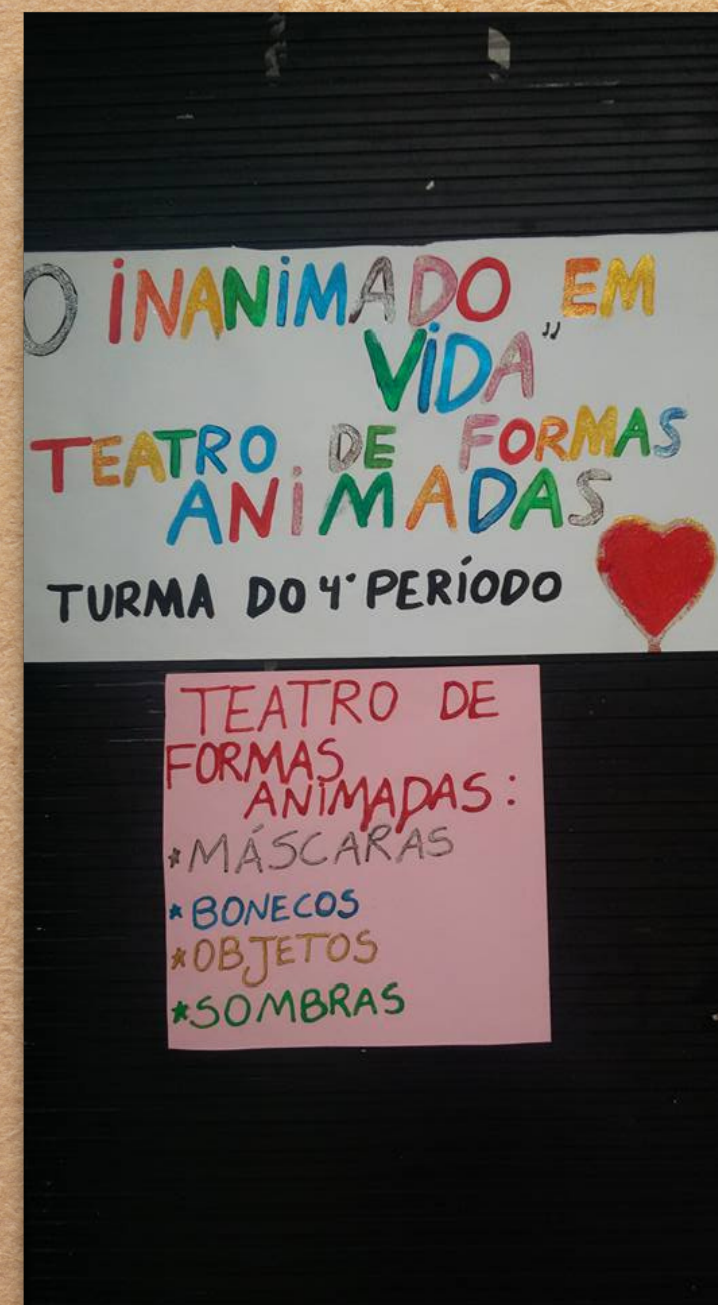 O INANIMADO EM
VIDA"
TEATRO DE FORMAS
ANIMADAS
TURMA DO 4° PERÍODO
TEATRO DE
FORMAS
ANIMADAS:
*MÁSCARAS
*BONECOS
*OBJETOS
*SOMBRAS